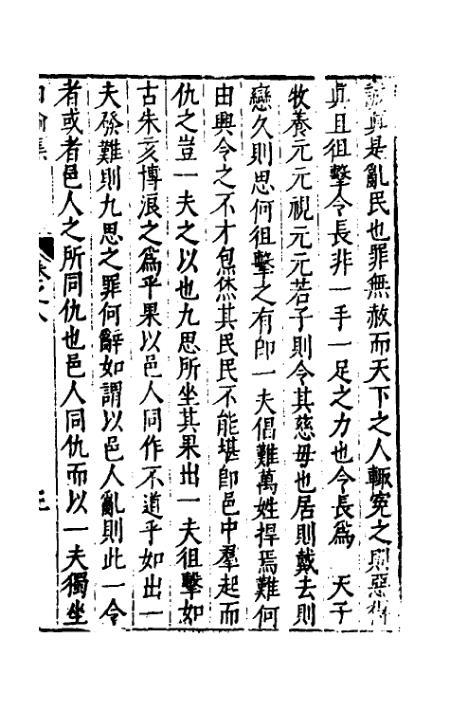 真是亂民也罪無赦而天下之人輒寃之則惡得
眞且徂擊令長非一手一足之力也令長爲　天子
牧養元元視元元若子則令其慈母也居則戴去則
戀久則思何徂擊之有卽一夫倡難萬姓捍焉難何
由興令之不才炰烋其民民不能堪卽邑中羣起而
仇之豈一夫之以也九思所坐其果出一夫徂擊如
古朱亥博浪之爲乎果以邑人同作不道乎如出一
夫發難則九思之罪何辭如謂以邑人亂則此一令
者或者邑人之所同仇也邑人同仇而以一夫獨坐
集
卷之八
三